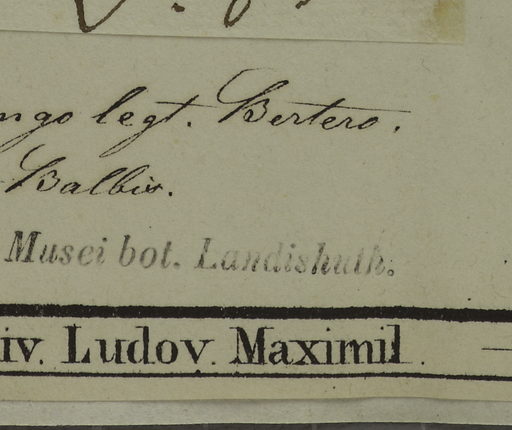 ngo legt. Bertero.
Balbis.
Musei bot. Landishuth.
iv. Ludov. Maximil.